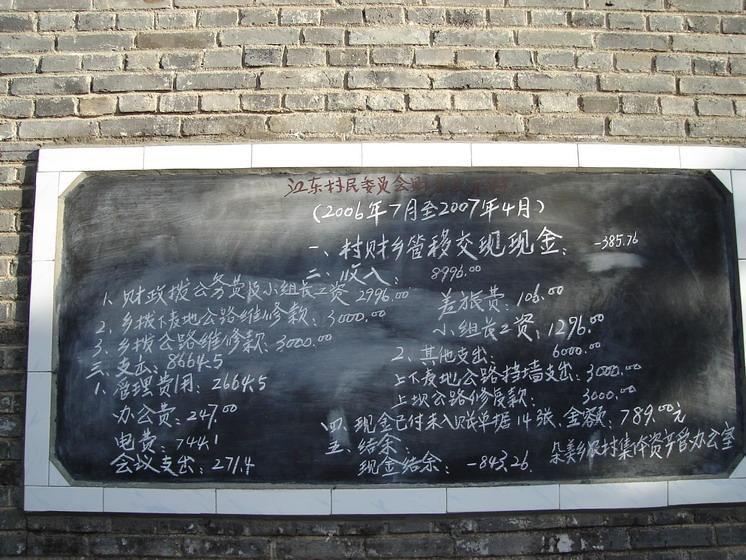 江东村民委员会财
(2006年7月至2007年4月)
一、村财乡管移交现现金: -385.76
二、收入: 8996.00
1、财政拨公务费及小组长工资 2996.00
2、乡拨下表地公路维修款: 3000.00
3、乡拨公路维修款: 3000.00
三、支出: 8664.5
1、管理费用: 2664.5
办公费: 247.00
电费: 744.1
会议支出: 271.4
差旅费: 106.00
小组长工资: 1296.00
2、其他支出: 6000.00
上下表地公路挡墙支出: 3000.00
上坝公路修复款: 3000.00
四、现金已付未入账单据14张、金额: 789.00元
五、结余:
现金结余: -843.26.
朵美乡农村集体资产管办公室